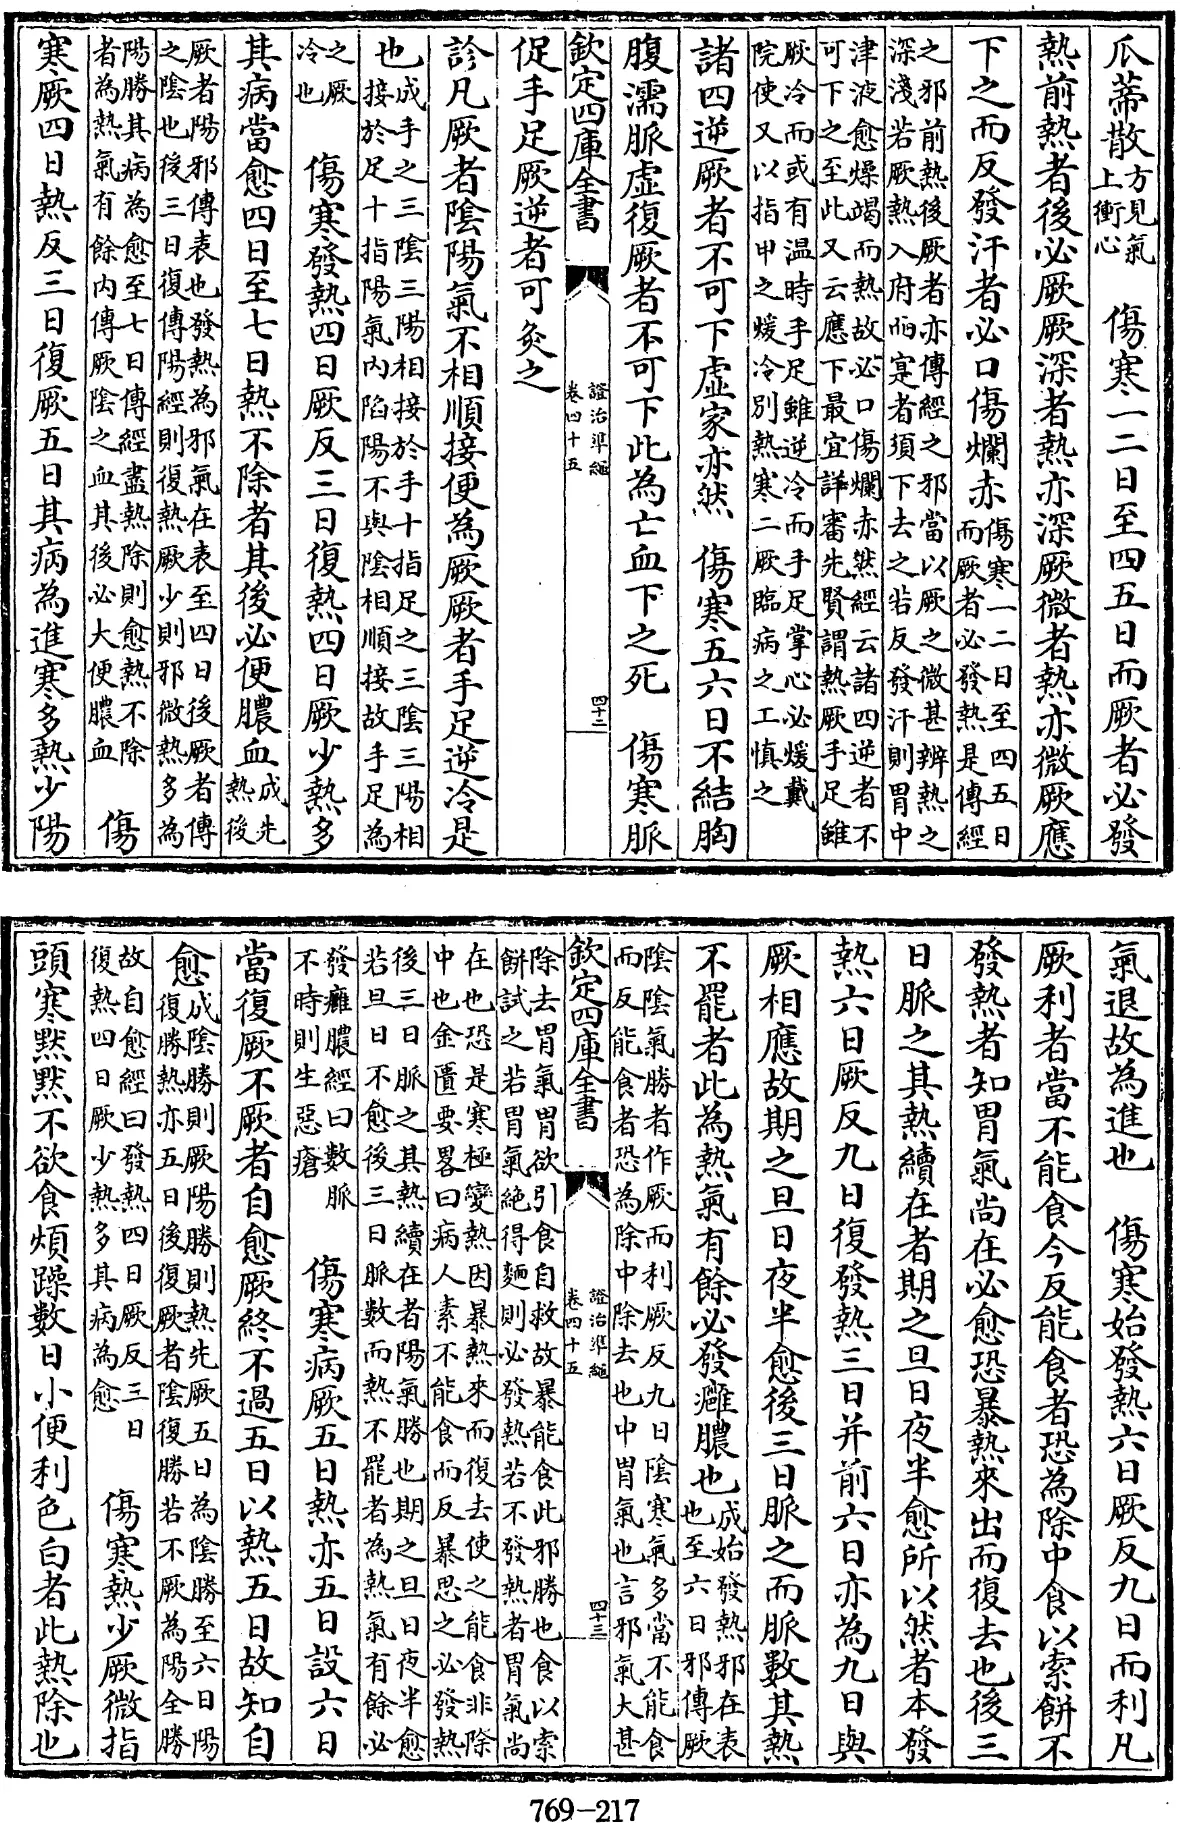 瓜蔕散方見氣上衝心　傷寒一二日至四五日而厥者必發
熱前熱者後必厥厥深者熱亦深厥微者熱亦微厥應
下之而反發汗者必口傷爛赤傷寒一二日至四五日而厥者必發熱是傳經
之邪前熱後厥者亦傳經之邪當以厥之微甚辨熱之
深淺若厥熱入府而寔者須下去之若反發汗則胃中
津液愈燥竭而熱故必口傷爛赤然經云諸四逆者不
可下之至此又云應下最宜詳審先賢謂熱厥手足雖
厥冷而或有温時手足雖逆冷而手足掌心必煖戴
院使又以指甲之煖冷別熱寒二厥臨病之工慎之
諸四逆厥者不可下虚家亦然　傷寒五六日不結胸
腹濡脈虚復厥者不可下此為亡血下之死　傷寒脈
欽定四庫全書　證治準繩　卷四十五　四十二
促手足厥逆者可灸之
診凡厥者陰陽氣不相順接便為厥厥者手足逆冷是
也成手之三陰三陽相接於手十指足之三陰三陽相
接於足十指陽氣内陷陽不與陰相順接故手足為
之厥冷也　傷寒發熱四日厥反三日復熱四日厥少熱多
其病當愈四日至七日熱不除者其後必便膿血成先熱後
厥者陽邪傳表也發熱為邪氣在表至四日後厥者傳
之陰也後三日復傳陽經則復熱厥少則邪微熱多為
陽勝其病為愈至七日傳經盡熱除則愈熱不除
者為熱氣有餘内傳厥陰之血其後必大便膿血　傷
寒厥四日熱反三日復厥五日其病為進寒多熱少陽
氣退故為進也　傷寒始發熱六日厥反九日而利凡
厥利者當不能食今反能食者恐為除中食以索餅不
發熱者知胃氣尚在必愈恐暴熱來出而復去也後三
日脈之其熱續在者期之旦日夜半愈所以然者本發
熱六日厥反九日復發熱三日并前六日亦為九日與
厥相應故期之旦日夜半愈後三日脈之而脈數其熱
不罷者此為熱氣有餘必發癰膿也成始發熱邪在表也至六日邪傳厥
陰陰氣勝者作厥而利厥反九日陰寒氣多當不能食
而反能食者恐為除中除去也中胃氣也言邪氣大甚
欽定四庫全書　證治準繩　卷四十五　四十三
除去胃氣胃欲引食自救故暴能食此邪勝也食以索
餅試之若胃氣絶得麵則必發熱若不發熱者胃氣尚
在也恐是寒極變熱因暴熱來而復去使之能食非除
中也金匱要畧曰病人素不能食而反暴思之必發熱
後三日脈之其熱續在者陽氣勝也期之旦日夜半愈
若旦日不愈後三日脈數而熱不罷者為熱氣有餘必
發癰膿經曰數脈不時則生惡瘡　傷寒病厥五日熱亦五日設六日
當復厥不厥者自愈厥終不過五日以熱五日故知自
愈成陰勝則厥陽勝則熱先厥五日為陰勝至六日陽
復勝熱亦五日後復厥者陰復勝若不厥為陽全勝
故自愈經曰發熱四日厥反三日
復熱四日厥少熱多其病為愈　傷寒熱少厥微指
頭寒默默不欲食煩躁數日小便利色白者此熱除也
769－217